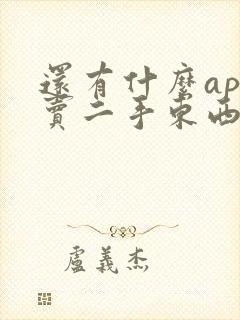 還有什麼ap
賣二手東西
盧義杰